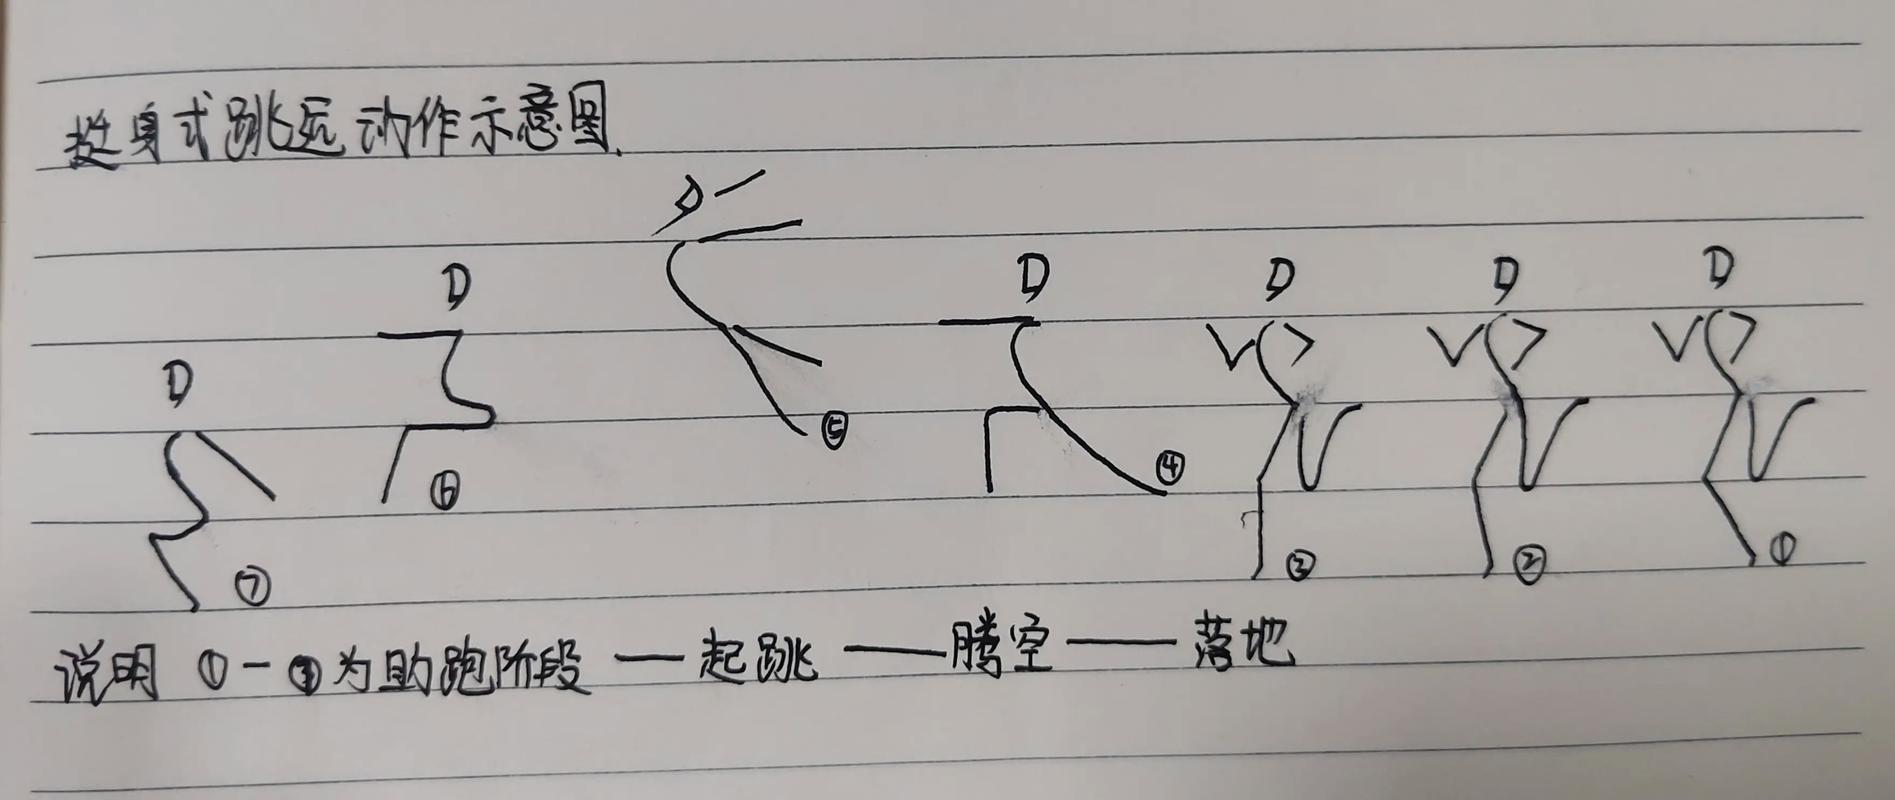 挺身式跳远动作示意图.
⑦ ⑥ ⑤ ④ ③ ② ①
说明 ①-③为助跑阶段——起跳——腾空——落地